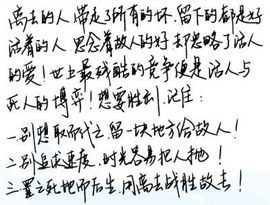 离去的人 带走了所有的坏.留下的都是好
活着的人 思念着故人的好 却忽略了活人
的爱！世上最残酷的竞争便是活人与
死人的博弈！想要胜利.记住：
一.别想取而代之.留一块地方给故人！
二.别追求速度.时光容易把人抛！
三.置之死地而后生.用离去战胜故去！